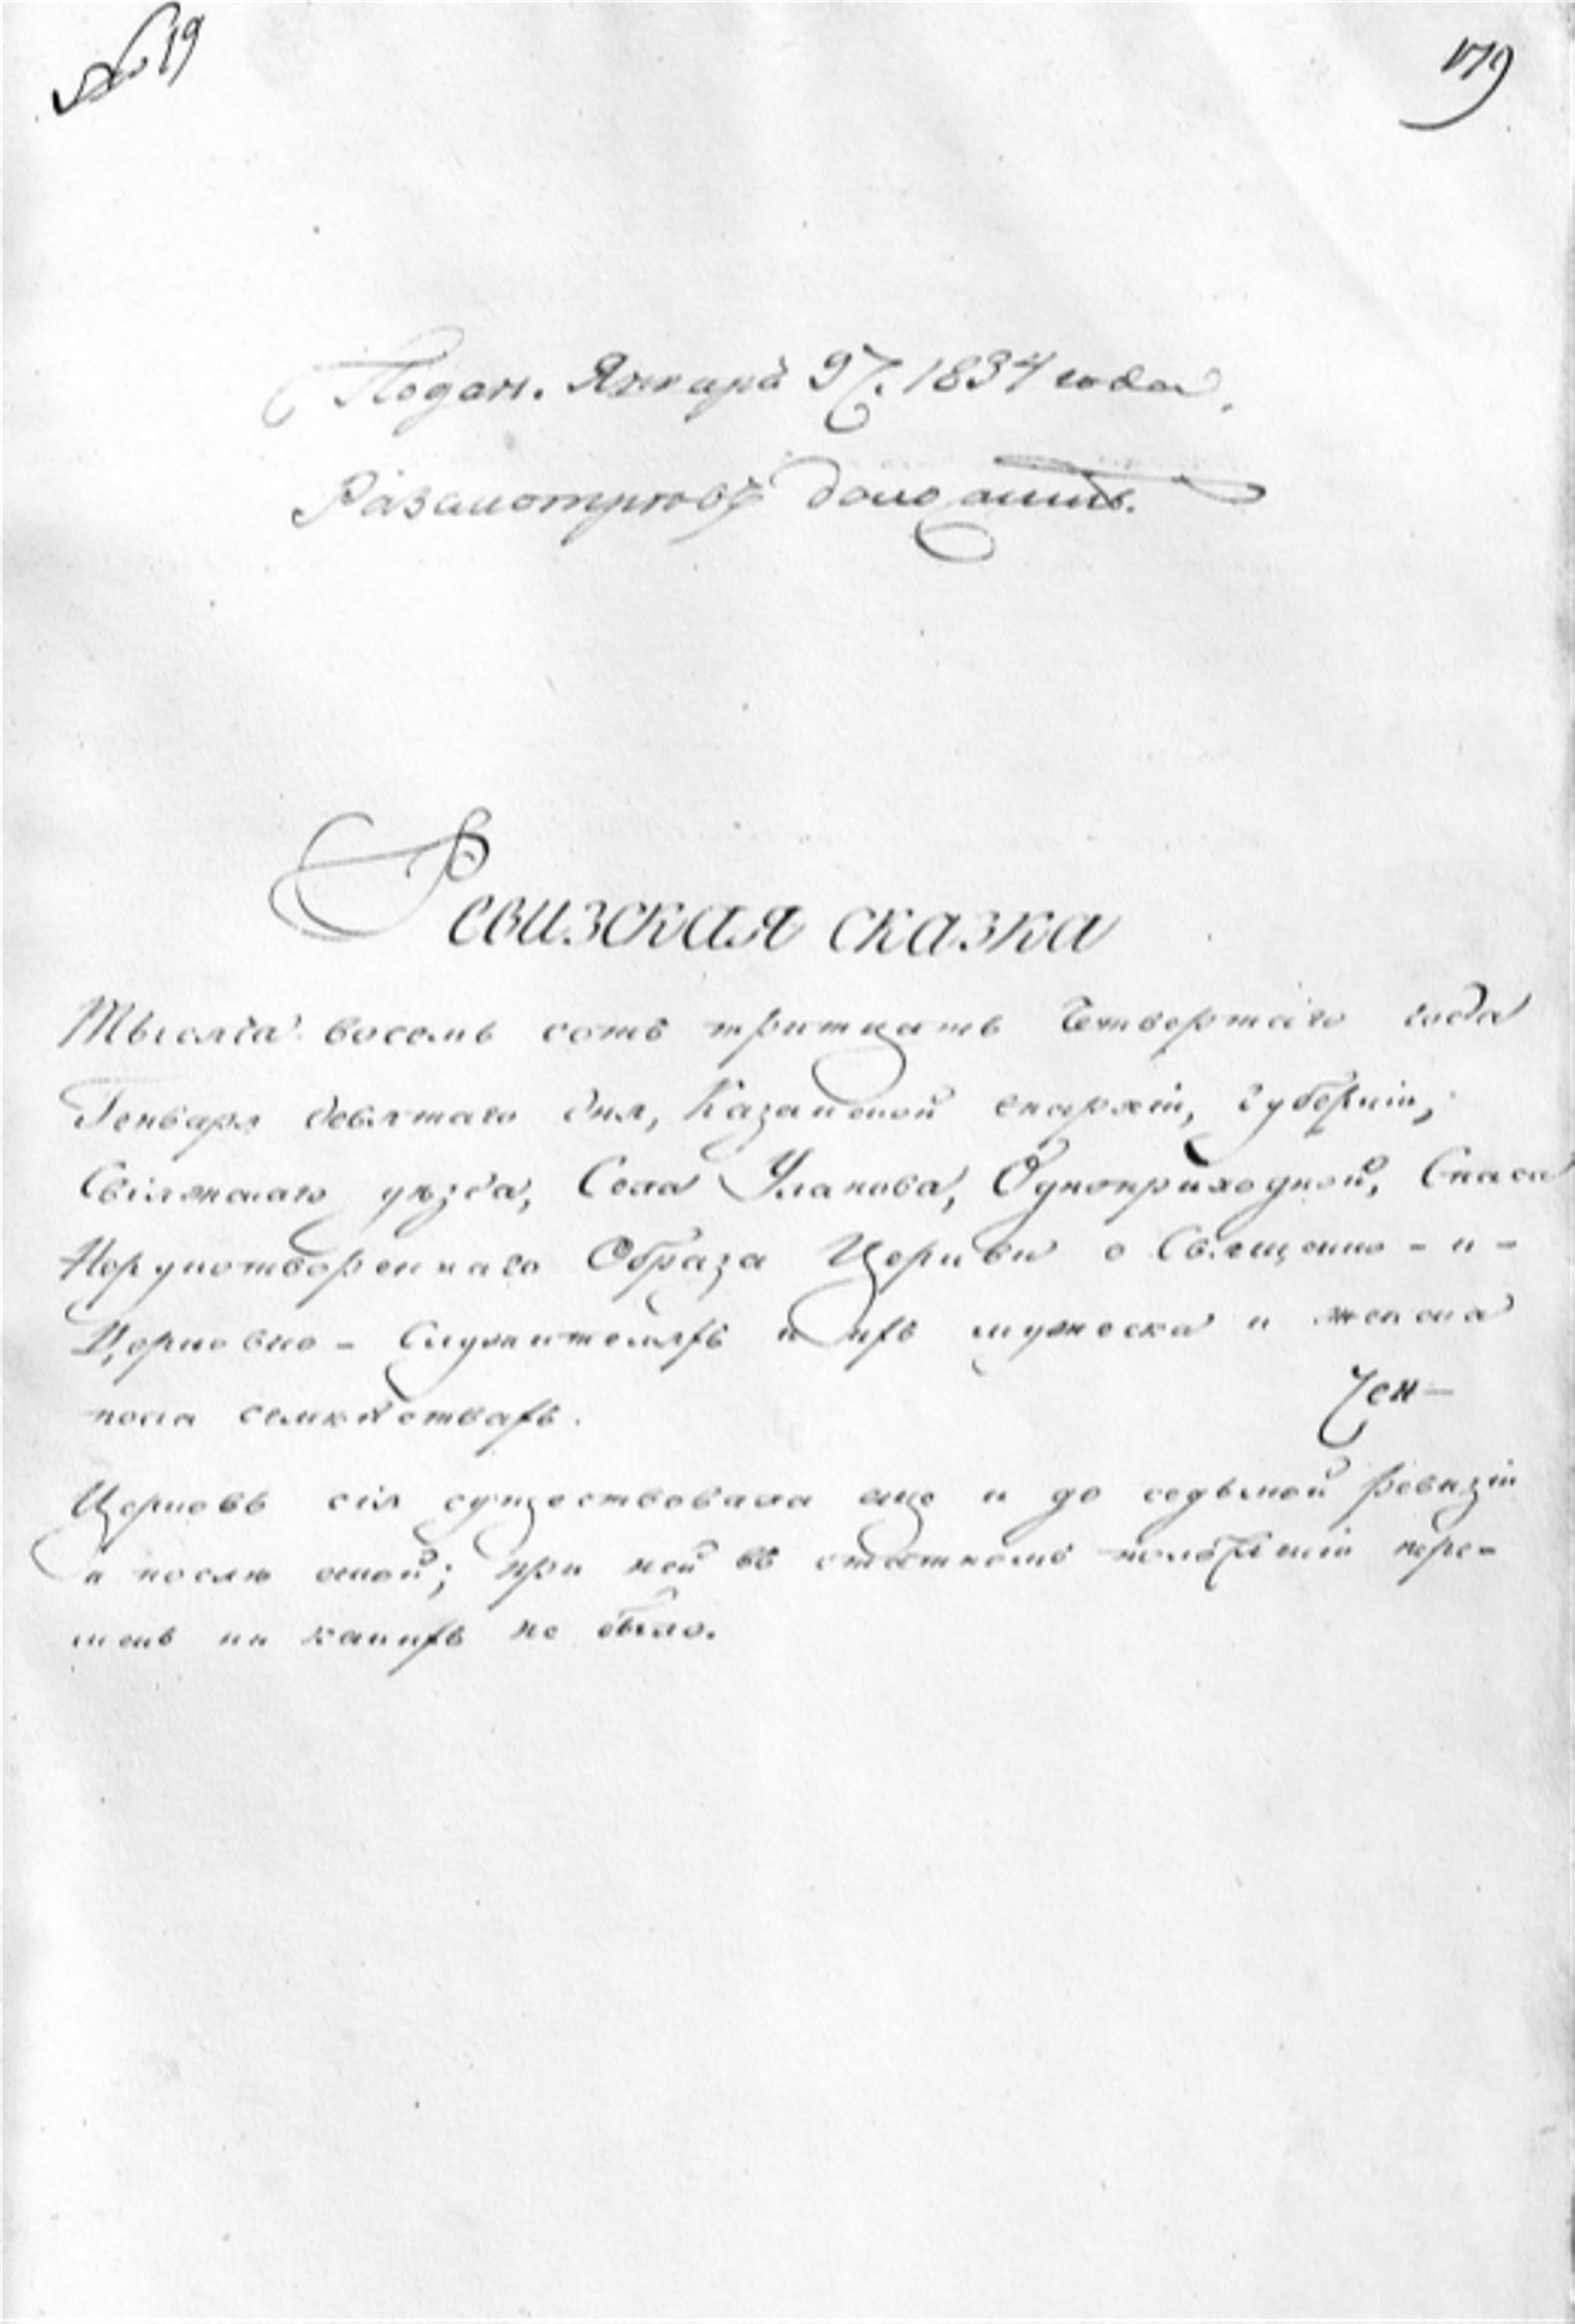 № 19
179
Подан. Января 9. 1834 года.
Разсмотревъ доложить.
Ревизская сказка
Тысяча восемь сотъ тритцать Четвертаго года
Генваря девятаго дня, Казанской епархіи, губерніи,
Свіяжскаго уѣзда, Села Уланова, Одноприходной, Спаса
Нерукотвореннаго Образа Церкви о Священно - и -
Церковно - Служителяхъ и ихъ мужеска и женска
пола семействахъ.
Церковь сія существовала еще и до седьмой ревизіи
и послѣ оной; при ней въ статномъ положеніи пере-
менъ ни какихъ не было.